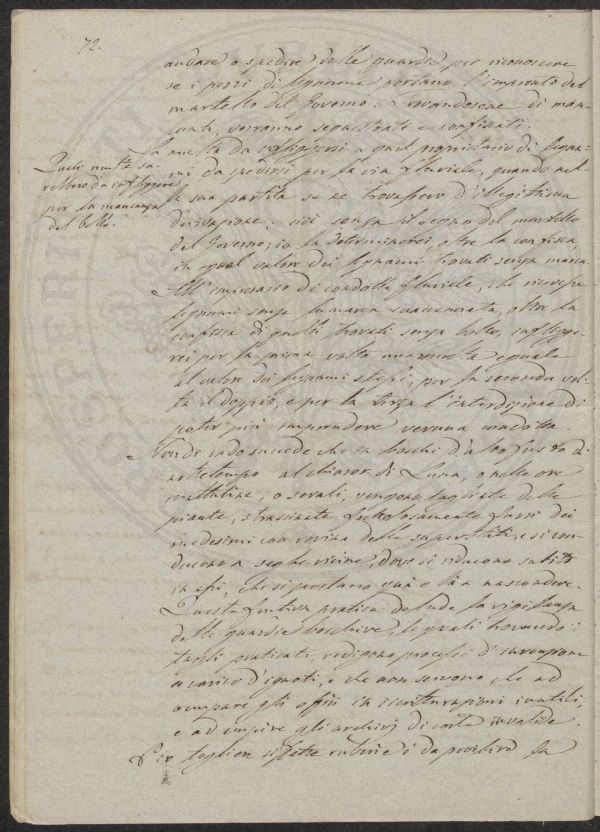 72.
andare o spedire delle guardie per riconoscere
se i pezzi di legname portano l'impronto del
martello del Governo. trovandosene di man-
canti, verranno sequestrati e confiscati.
Quali multe sa-
rebbero da infliggere
per la mancanza
del bollo.
La multa da infliggersi a quel proprietario di legna-
mi da spedirsi per la via fluviale, quando nel-
la sua partita se ne trovassero d'illegittima
derivazione, cioè senza il segno del martello
del Governo, io la determinerei, oltre la confisca,
in egual valore dei legnami trovati senza marca.
All'impresario di condotte fluviale, che ricevesse
legnami senza la marca suaccennata, oltre la
confisca di quelli trovati senza bollo, infligge-
rei per la prima volta una multa eguale
al valore dei legnami stessi, per la seconda vol-
ta il doppio, e per la terza l'interdizione di
poter più imprendere veruna condotta.
Non di rado succede che in boschi d'alto fusto di
nottetempo al chiaror di Luna, o nelle ore
mattutine, o serali, vengono tagliate delle
piante, strascinate frettolosamente fuori dei
medesimi con rovina delle superstiti, e si con-
ducono a seghe vicine, dove si riducono subito
in assi, che si portano quà e là a nascondere.
Questa furtiva pratica delude la vigilanza
delle guardie boschive, le quali trovando i
tagli praticati, redigono processi d'invenzione
a carico d'ignoti, e che non servono che ad
occupare gli offizi in scritturazioni inutili,
e ad empire gli archivj di carte invalide.
Per togliere siffatte ruberie è da proibirsi la